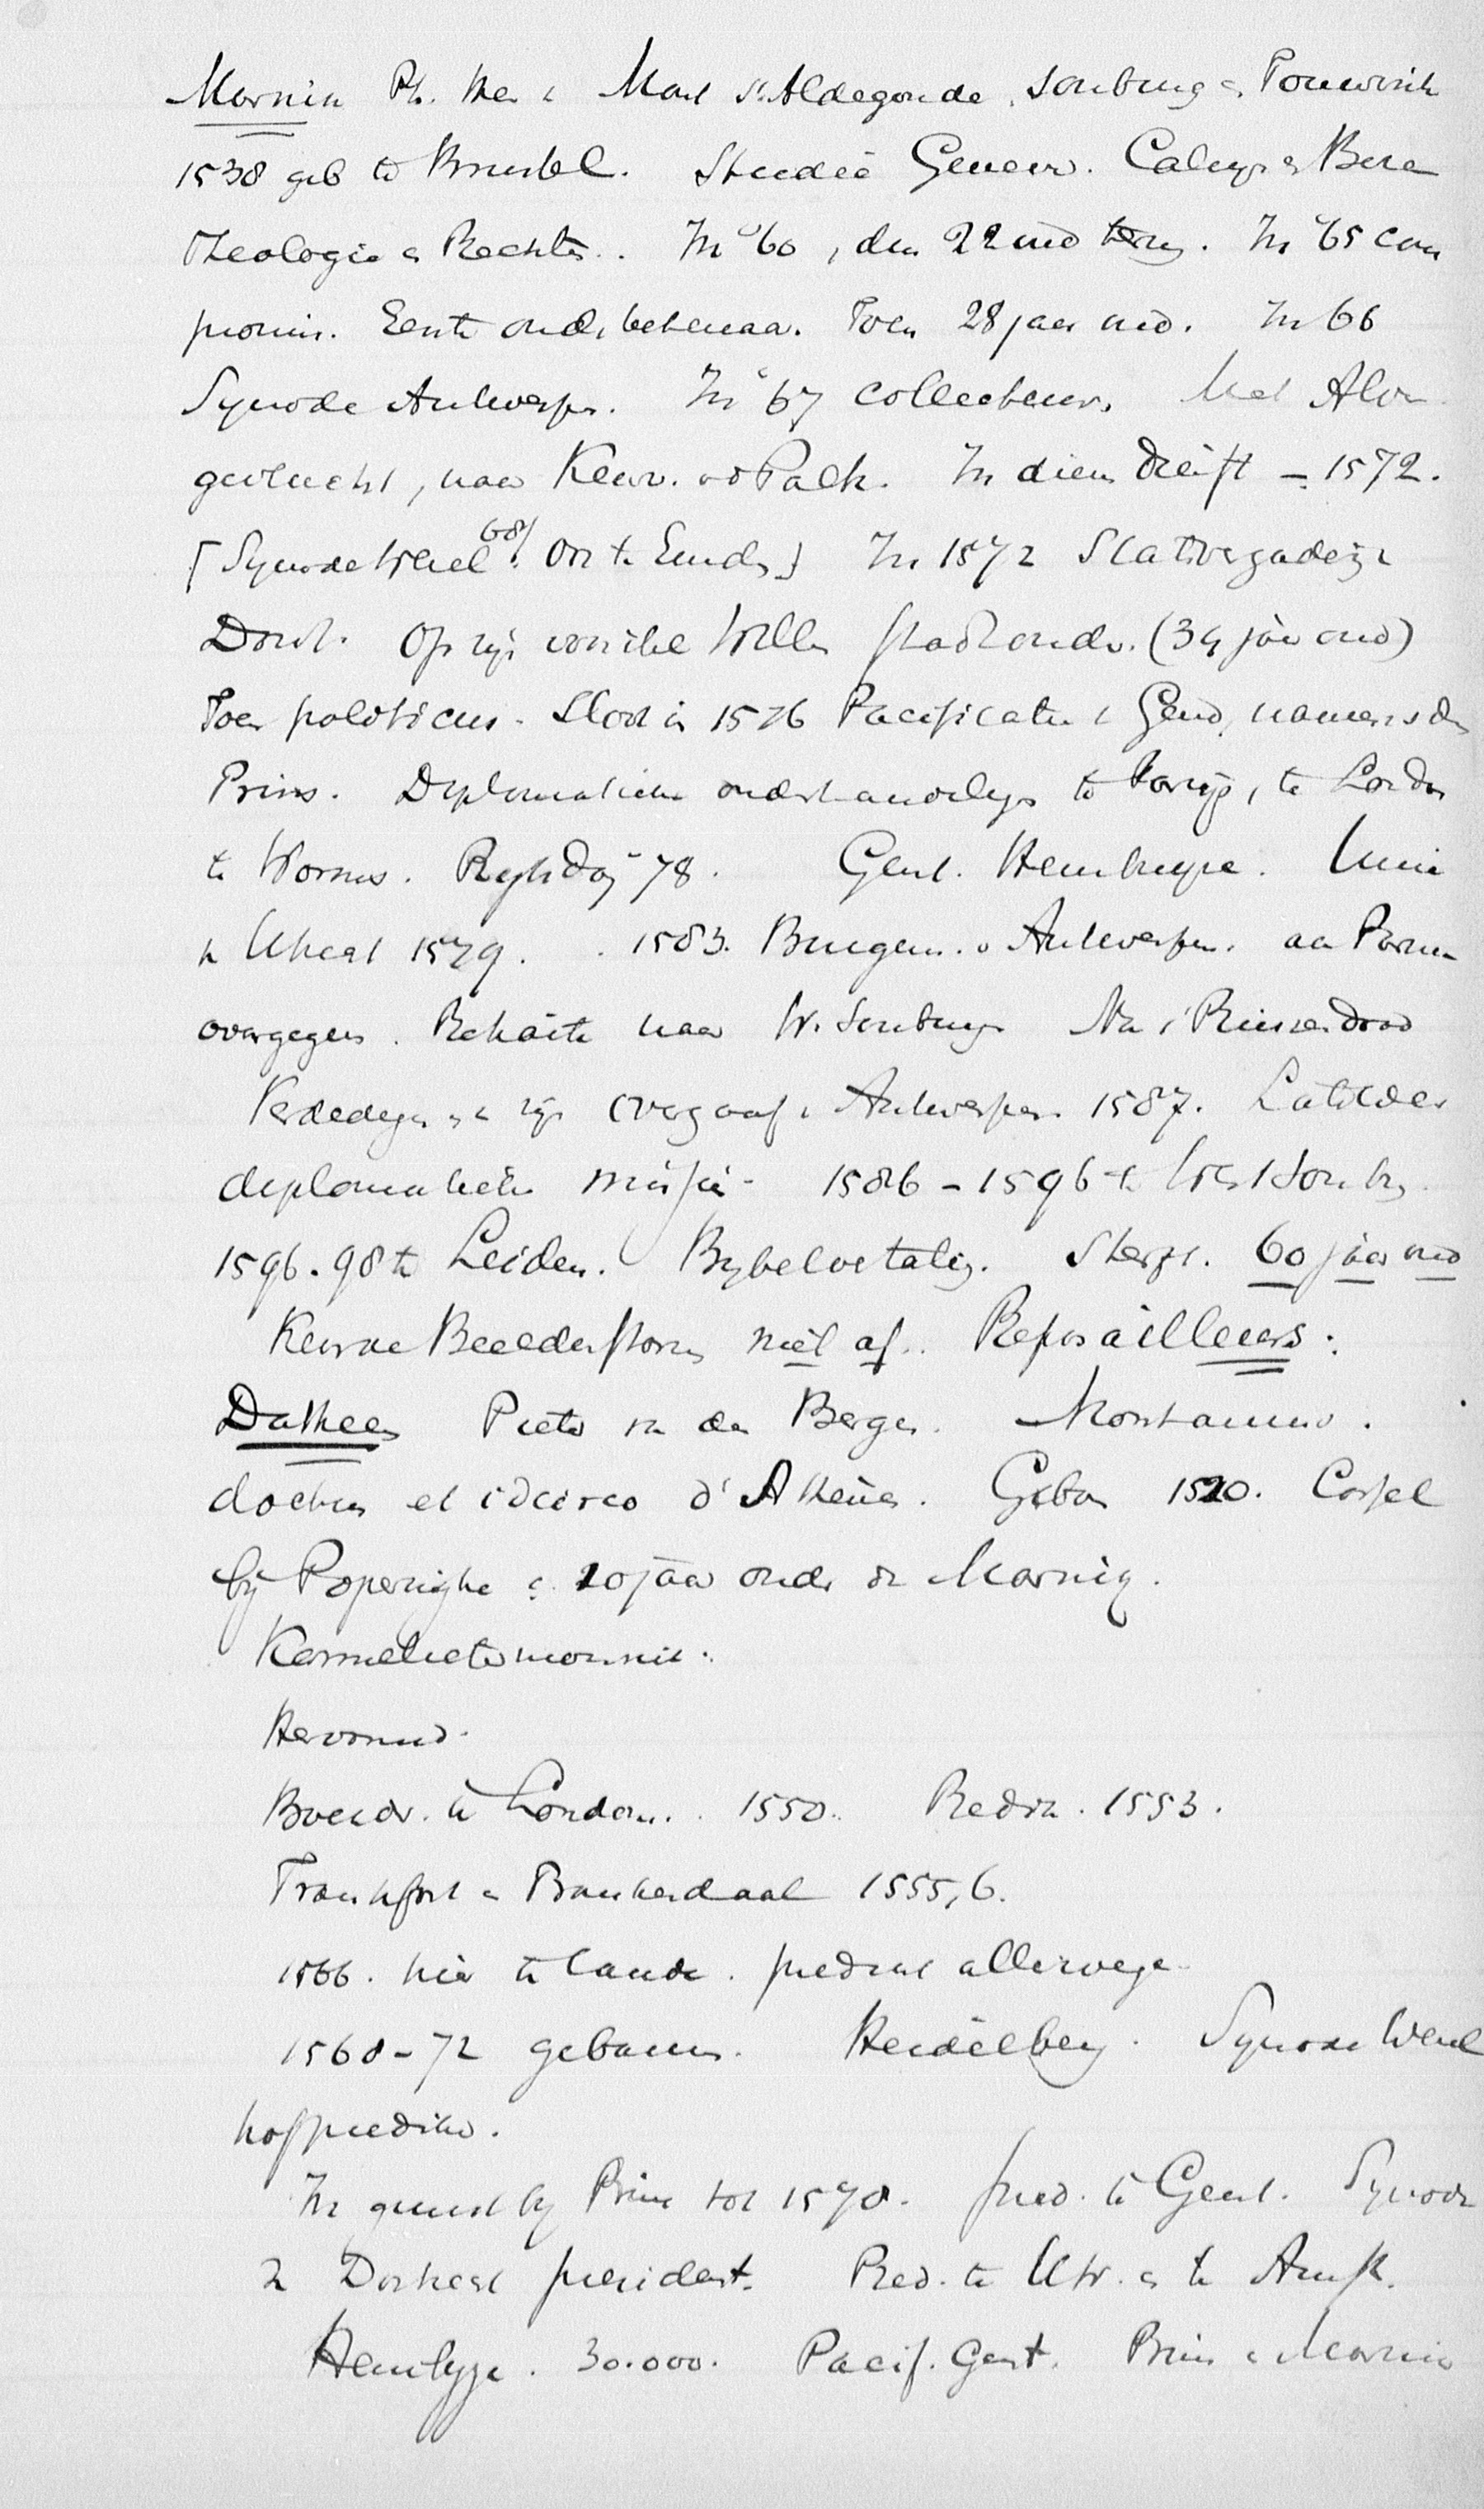 Marnix Ph. Heer v Mont St. Aldegonde, Souburg en Touwinck
1538 geb te Brussel. Studie Geneve. Calvyn en Beza
Theologie en Rechten. In '60, dus 22 oud terug. In '65 com
promis. Eerste onderteekenaar. Toen 28 jaar oud. In 66
Synode Antwerpen. In '67 collecteur. Met Alva
gevlucht, naar Keurv. vd Palts. In diens dienst – 1572.
[Synode Wesel 68/ en te Emden] In 1572 Statvergadering
Dord. Op zijn voorstel Willem stadhouder. (34 jaar oud)
Toen politicus. Sloot in 1576 Pacificatie v Gend, namens den
Prins. Diplomatieke onderhandelingen te Parijs, te Londen
te Worms. Ryksdag '78. Gent. Hembyze. Unie
v Utrecht 1579. 1583. Burgem. v Antwerpen. aan Parma
overgegeven. Retraite naar W. Souburg. Na 's Prinsen dood
Verdediging van zijn overgaaf v Antwerpen 1587. Later
diplomatieke missie. 1586 – 1596 te West Souburg.
1596-98 te Leiden. Bybelvertaling. Sterft. 60 jaar oud
Keurde Beeldenstorm niet af. Repos ailleurs.
Datheen Pieter van den Bergen. Montanus.
doctus et idcirco d'Athènes. Geboren 1520. Cassel
by Poperinghe c. 20 jaar ouder dn Marnix.
Karmelietermonnik.
Hervormd.
Boekdr. te London. 1550. Predik. 1553.
Frankfort en Frankendaal 1555,6.
1566. hier te lande. predikt allerwege
1568-72 gebannen. Heidelberg. Synode Wesel
hofprediker.
In gunst by Prins tot 1578. pred. te Gent. Synode
v Dortrecht president. Pred. te Utr. en te Amst.
Hembyze. 30.000. Pacif. Gent. Prins en Marnix